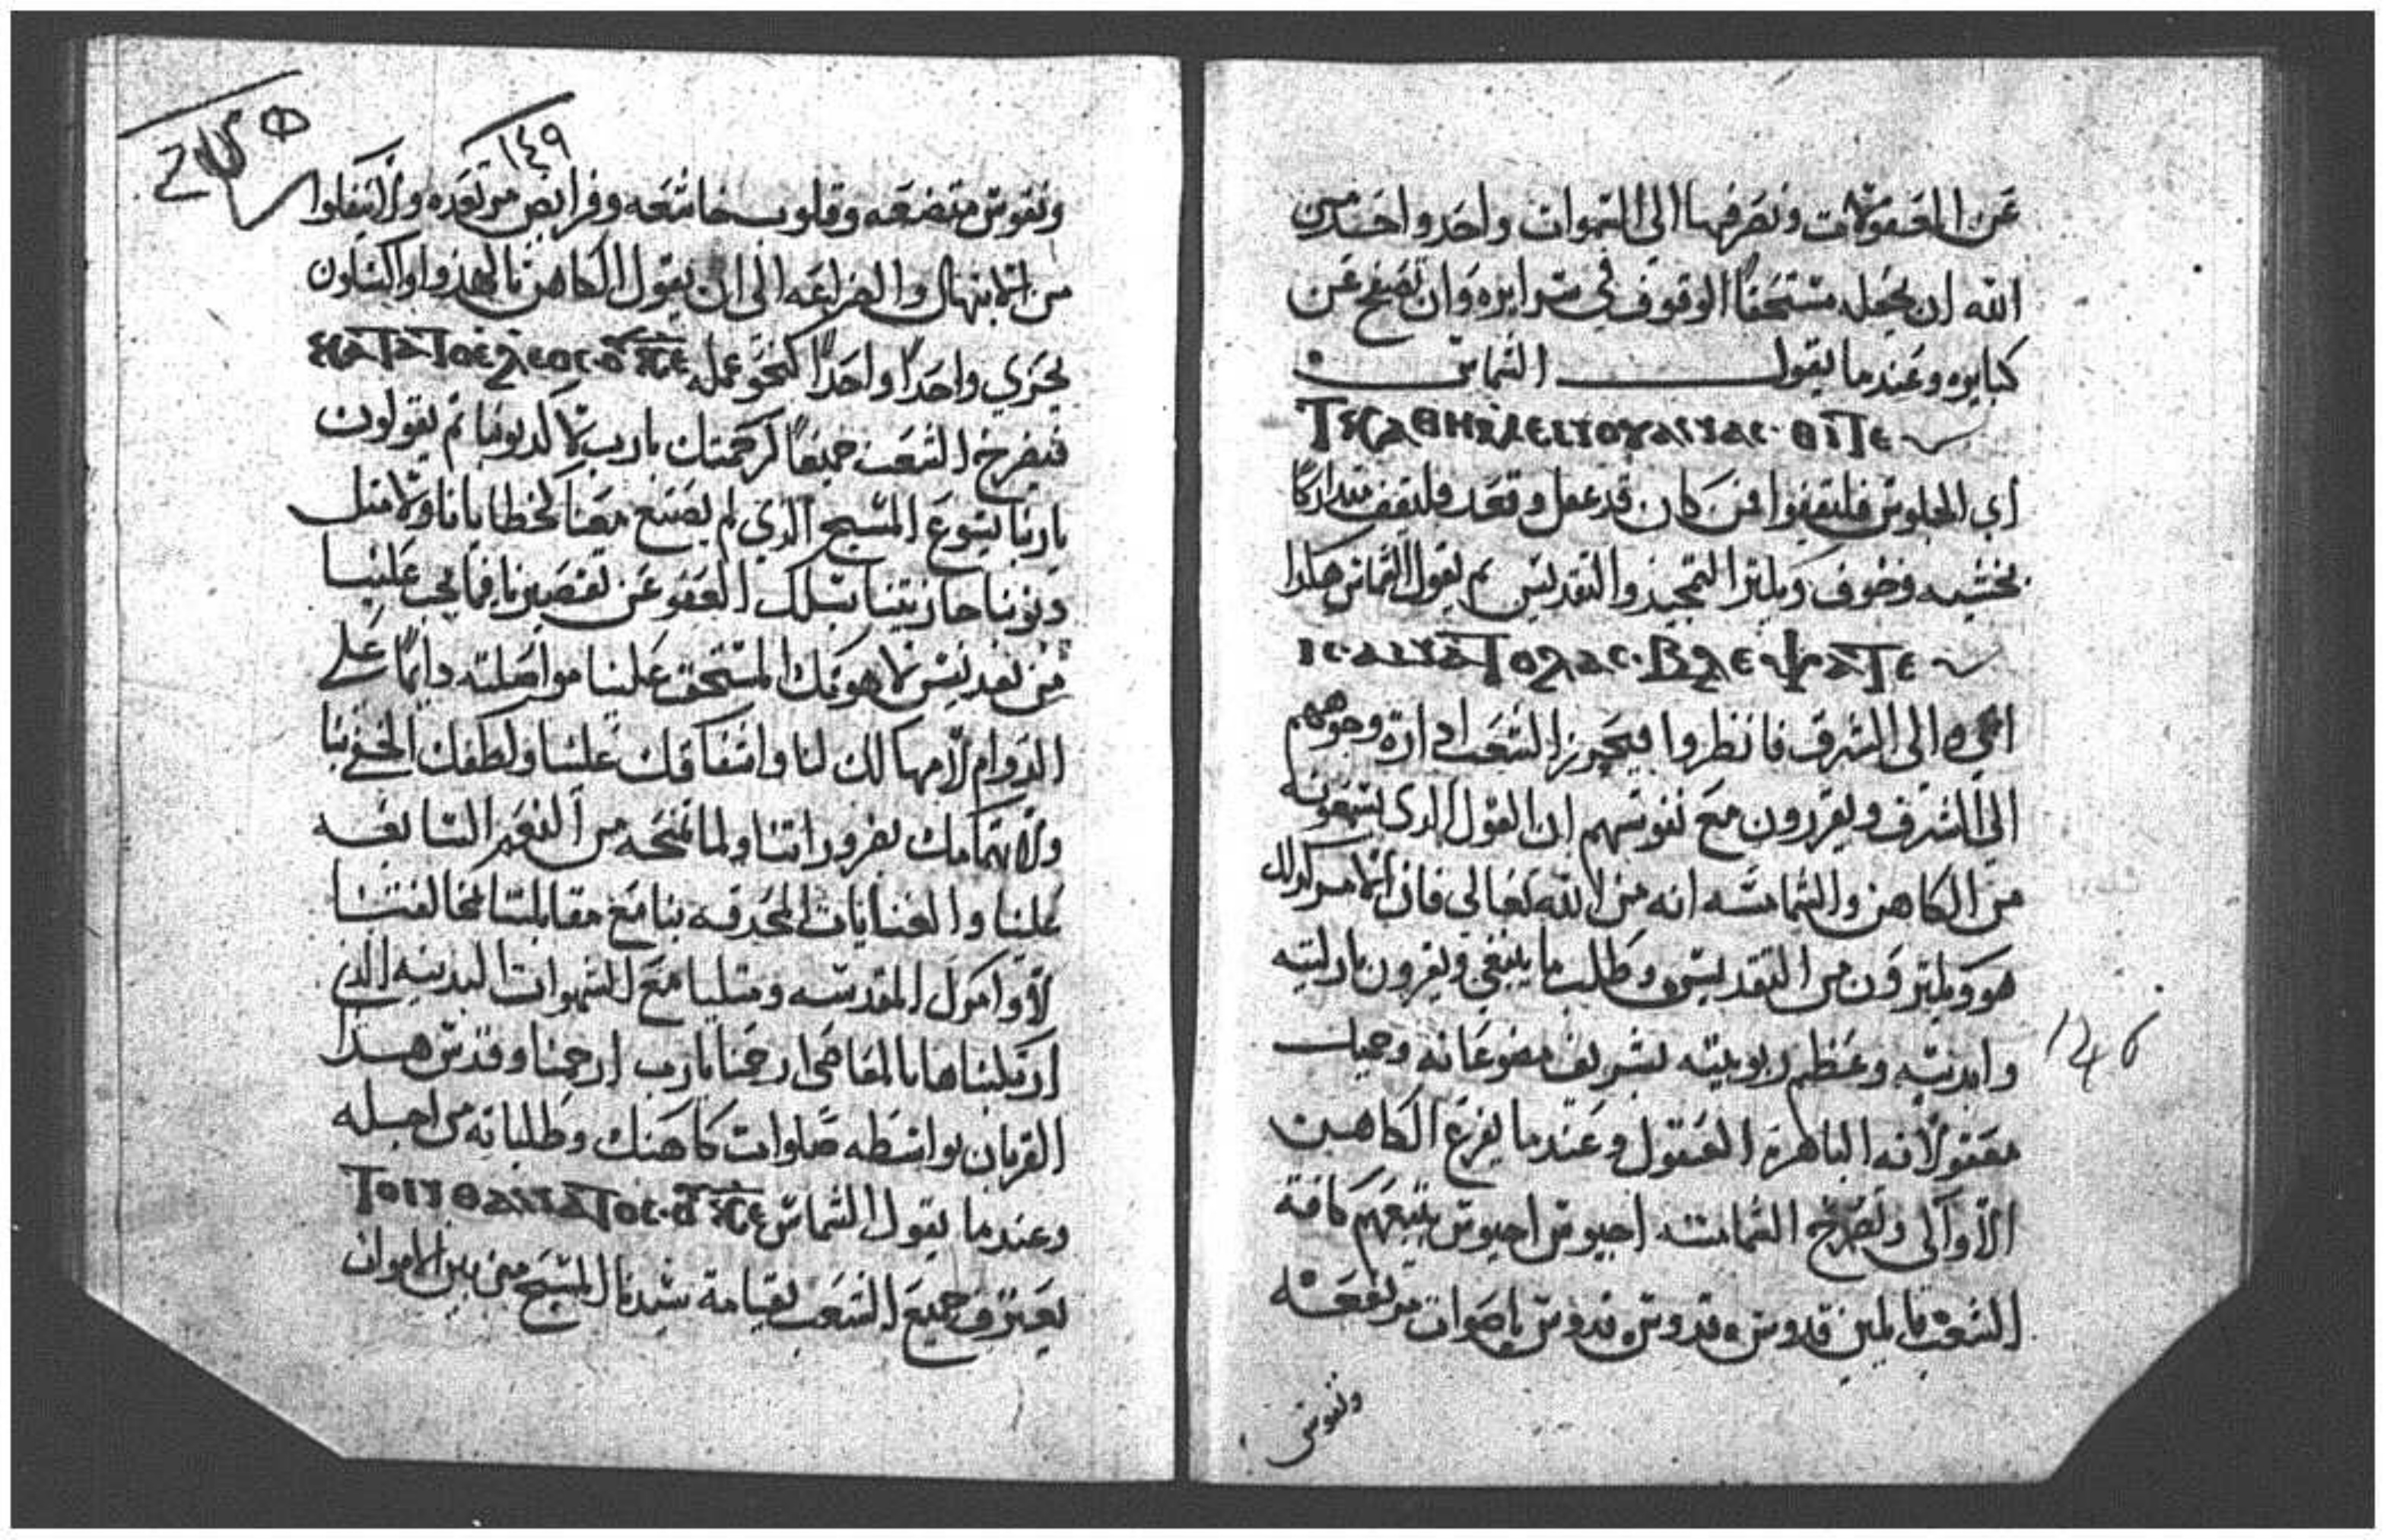 عن المعقولات ونصرفها الى السموات واحد واحد من
الله ان يجعله مستحقا الوقوف في سرايره وان يصفح عن
كبايره وعندما يقول الشماس
ⲓ ⲕⲁⲑⲏⲙⲉⲛⲟⲓ
اي الجلوس فليقفوا فمن كان قد غفل وقعد فليقف متداركا
بخشيه وخوف ويلتزم التمجيد والتقديس ثم يقول الشماس هكذا
ⲓⲥ ⲁⲛⲁⲧⲟⲗⲁⲥ ⲃⲗⲉⲯⲁⲧⲉ
الى الشرق فانظروا الشعب ادارة وجوههم
الى الشرق ويقررون مع نفوسهم ان القول الذي يسمعونه
من الكاهن والشمامسه انه من الله تعالى فان الامر كذلك
هو ويلتزمون من التقديس وطلب ما ينبغي ويقرون بازليته
وابديته وعظم ربوبيته بشريف مصنوعاته وجميل
معقولاته الباهرة العقول وعندما يفرغ الكاهن
الاواكي وتصرخ الشمامسه اجيوس اجيوس يتبعهم كافة
الشعب قايلين قدوس قدوس قدوس باصوات مرتفعه
ونفوس
١٤٩
ونفوس متضعه وقلوب خاشعه وفرايص مرتعده ولا يغفلوا
من الابتهال والضراعه الى ان يقول الكاهن
يجزي واحدا واحدا كنحو عمله
فيصرخ الشعب جميعا كرحمتك يارب لا كذنوبنا ثم يقولون
ياربنا يسوع المسيح الذي لم يصنع معنا كخطايانا ولا مثل
ذنوبنا جازيتنا نسلك العفو عن تقصيرنا فيما يجب علينا
من تقديس لاهوتك المستحق علينا مواصلته دايما على
الدوام لامهالك لنا واشفاقك علينا ولطفك الخفي بنا
ولاهتمامك بضروراتنا ولما تمنحه من النعم السابغه
علينا والعنايات المحدقه بنا مع مقابلتنا لمخالفتنا
لاوامرك المقدسه وميلنا مع الشهوات البدنيه الذي
ارتكبناها بالمعاصي ارحمنا يارب ارحمنا وقدس هذا
القربان بواسطه صلوات كاهنك وطلباته من اجله
وعندما يقول الشماس ⲧⲟⲛ ⲑⲁⲛⲁⲧⲟⲥ
يعترف جميع الشعب بقيامة سيدنا المسيح من بين الاموات